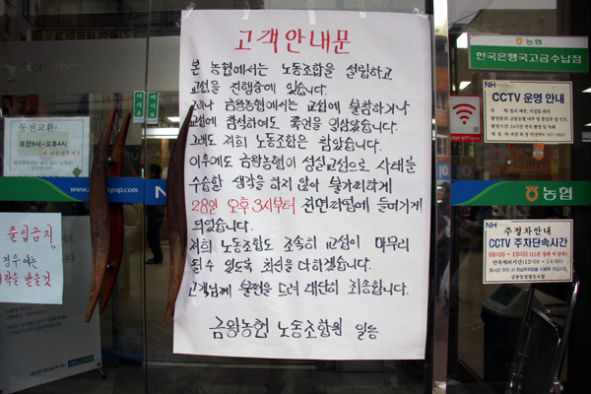 고객안내문
본 농협에서는 노동조합을 설립하고
교섭을 진행중에 있습니다.
그러나 금왕농협에서는 교섭에 불참하거나
교섭에 참석하여도 폭언을 일삼았습니다.
그래도 저희 노동조합은 참았습니다.
이후에도 금왕농협이 성실교섭으로 사태를
수습할 생각을 하지 않아 불가피하게
28일 오후 3시부터 전면파업에 들어가게
되었습니다.
저희 노동조합도 조속히 교섭이 마무리
될수 있도록 최선을 다하겠습니다.
고객님께 불편을 드려 대단히 죄송합니다.
금왕농협 노동조합원 일동
동전교환
오전9시~오후4시
출입금지
경우에는
농협
한국은행국고금수납점
NH
CCTV 운영 안내
농협
NH
주정차안내
CCTV 주차단속시간
08:00 ~ 19:00